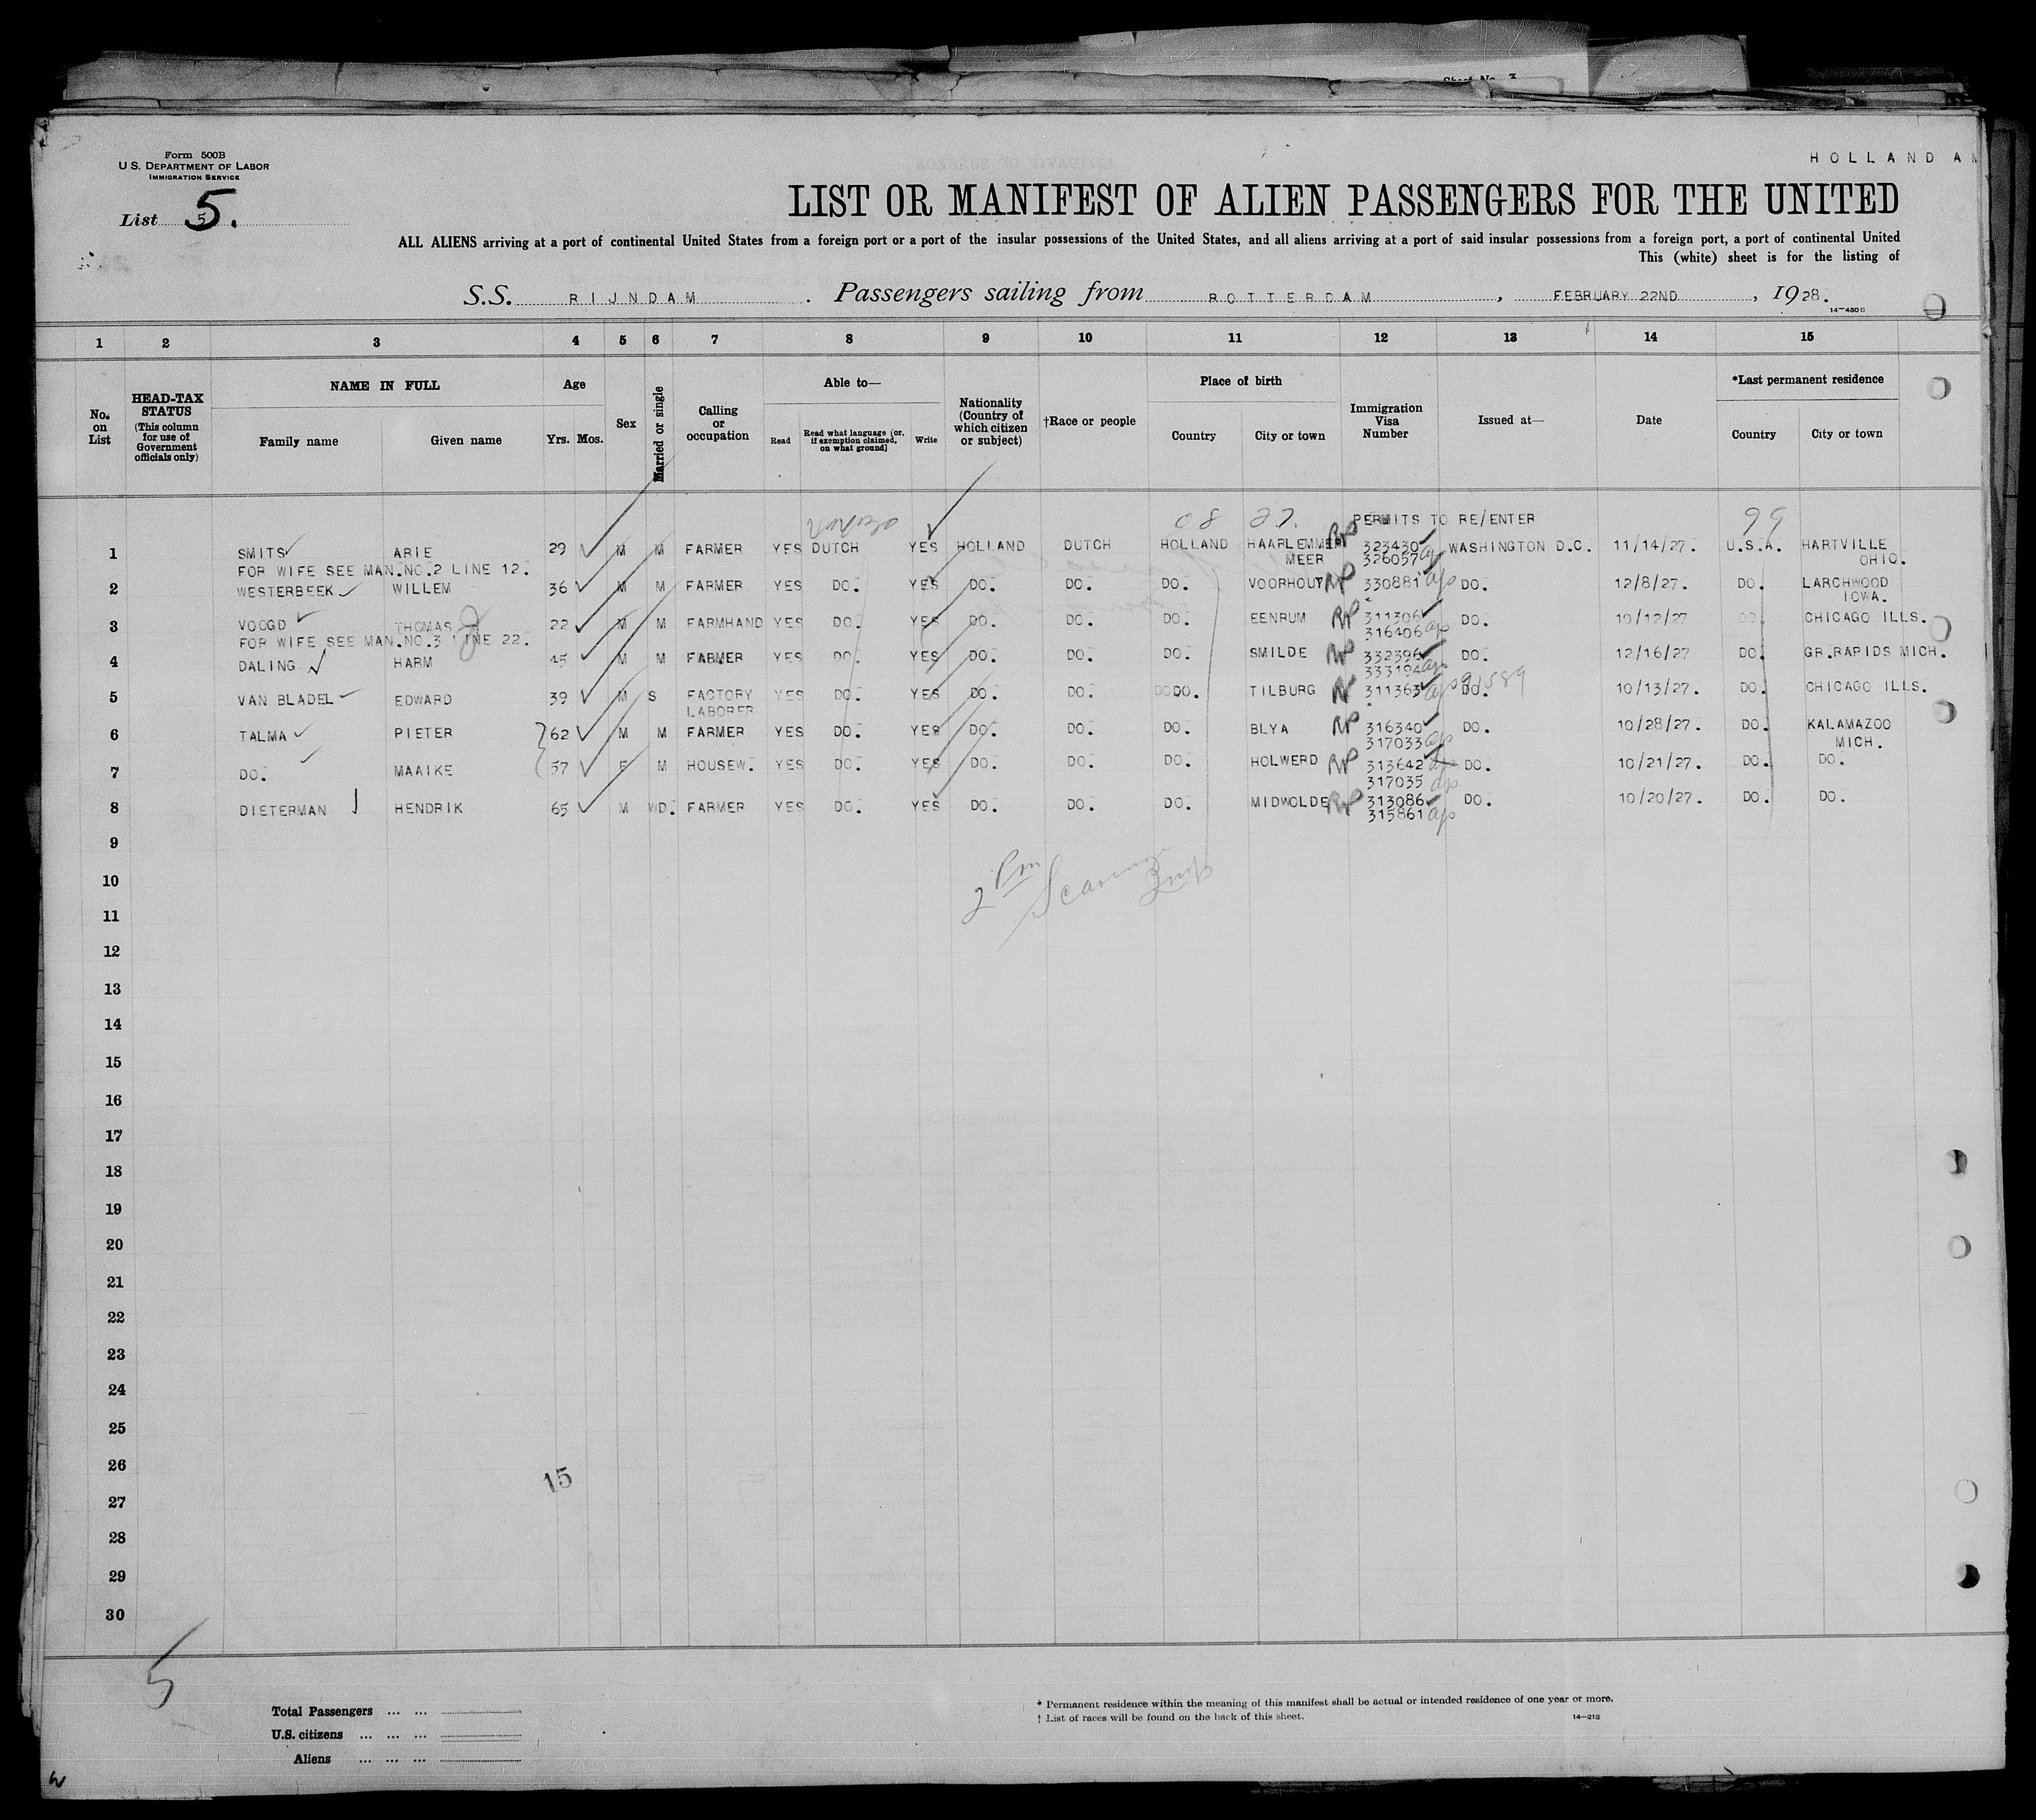 Sheet No. 3
HOLLAND AM
Form 500B
U.S. DEPARTMENT OF LABOR
IMMIGRATION SERVICE
List 5 5.
LIST OR MANIFEST OF ALIEN PASSENGERS FOR THE UNITED
ALL ALIENS arriving at a port of continental United States from a foreign port or a port of the insular possessions of the United States, and all aliens arriving at a port of said insular possessions from a foreign port, a port of continental United
This (white) sheet is for the listing of
S.S. RIJNDAM. Passengers sailing from ROTTERDAM, FEBRUARY 22ND, 1928.
14-430 B
1 2 3 4 5 6 7 8 9 10 11 12 13 14 15
No. on List
HEAD-TAX STATUS (This column for use of Government officials only)
NAME IN FULL
Family name Given name
Age
Yrs. Mos.
Sex
Married or single
Calling or occupation
Able to—
Read Read what language (or, if exemption claimed, on what ground) Write
Nationality (Country of which citizen or subject)
†Race or people
Place of birth
Country City or town
Immigration Visa Number
Issued at—
Date
*Last permanent residence
Country City or town
08 27. PERMITS TO RE/ENTER 99
1 SMITS ARIE 29 M M FARMER YES DUTCH YES HOLLAND DUTCH HOLLAND HAARLEMMER RP 323430 WASHINGTON D.C. 11/14/27. U.S.A. HARTVILLE
MEER 326057 OHIO.
FOR WIFE SEE MAN.NO.2 LINE 12.
2 WESTERBEEK WILLEM 36 M M FARMER YES DO. YES DO. DO. DO. VOORHOUT RP 330881 DO. 12/8/27. DO. LARCHWOOD
IOWA.
3 VOOGD THOMAS 22 M M FARMHAND YES DO. YES DO. DO. DO. EENRUM RP 311306 DO. 10/12/27 DO. CHICAGO ILLS.
316406
FOR WIFE SEE MAN.NO.3 LINE 22.
4 DALING HARM 45 M M FARMER YES DO. YES DO. DO. DO. SMILDE RP 332396 DO. 12/16/27 DO. GR.RAPIDS MICH.
333194
5 VAN BLADEL EDWARD 39 M S FACTORY YES DO. YES DO. DO. DO. TILBURG RP 311363 DO. 10/13/27. DO. CHICAGO ILLS.
LABORER
6 TALMA PIETER 62 M M FARMER YES DO. YES DO. DO. DO. BLYA RP 316340 DO. 10/28/27. DO. KALAMAZOO
317033 MICH.
7 DO. MAAIKE 57 F M HOUSEW. YES DO. YES DO. DO. DO. HOLWERD RP 313642 DO. 10/21/27. DO. DO.
317035
8 DIETERMAN HENDRIK 65 M WD. FARMER YES DO. YES DO. DO. DO. MIDWOLDE RP 313086 DO. 10/20/27. DO. DO.
315861
9
2 Pm
10
11
12
13
14
15
16
17
18
19
20
21
22
23
24
25
26
15
27
28
29
30
5
Total Passengers ... ...
U.S. citizens ... ... ...
Aliens ... ... ...
* Permanent residence within the meaning of this manifest shall be actual or intended residence of one year or more.
† List of races will be found on the back of this sheet.
14-213